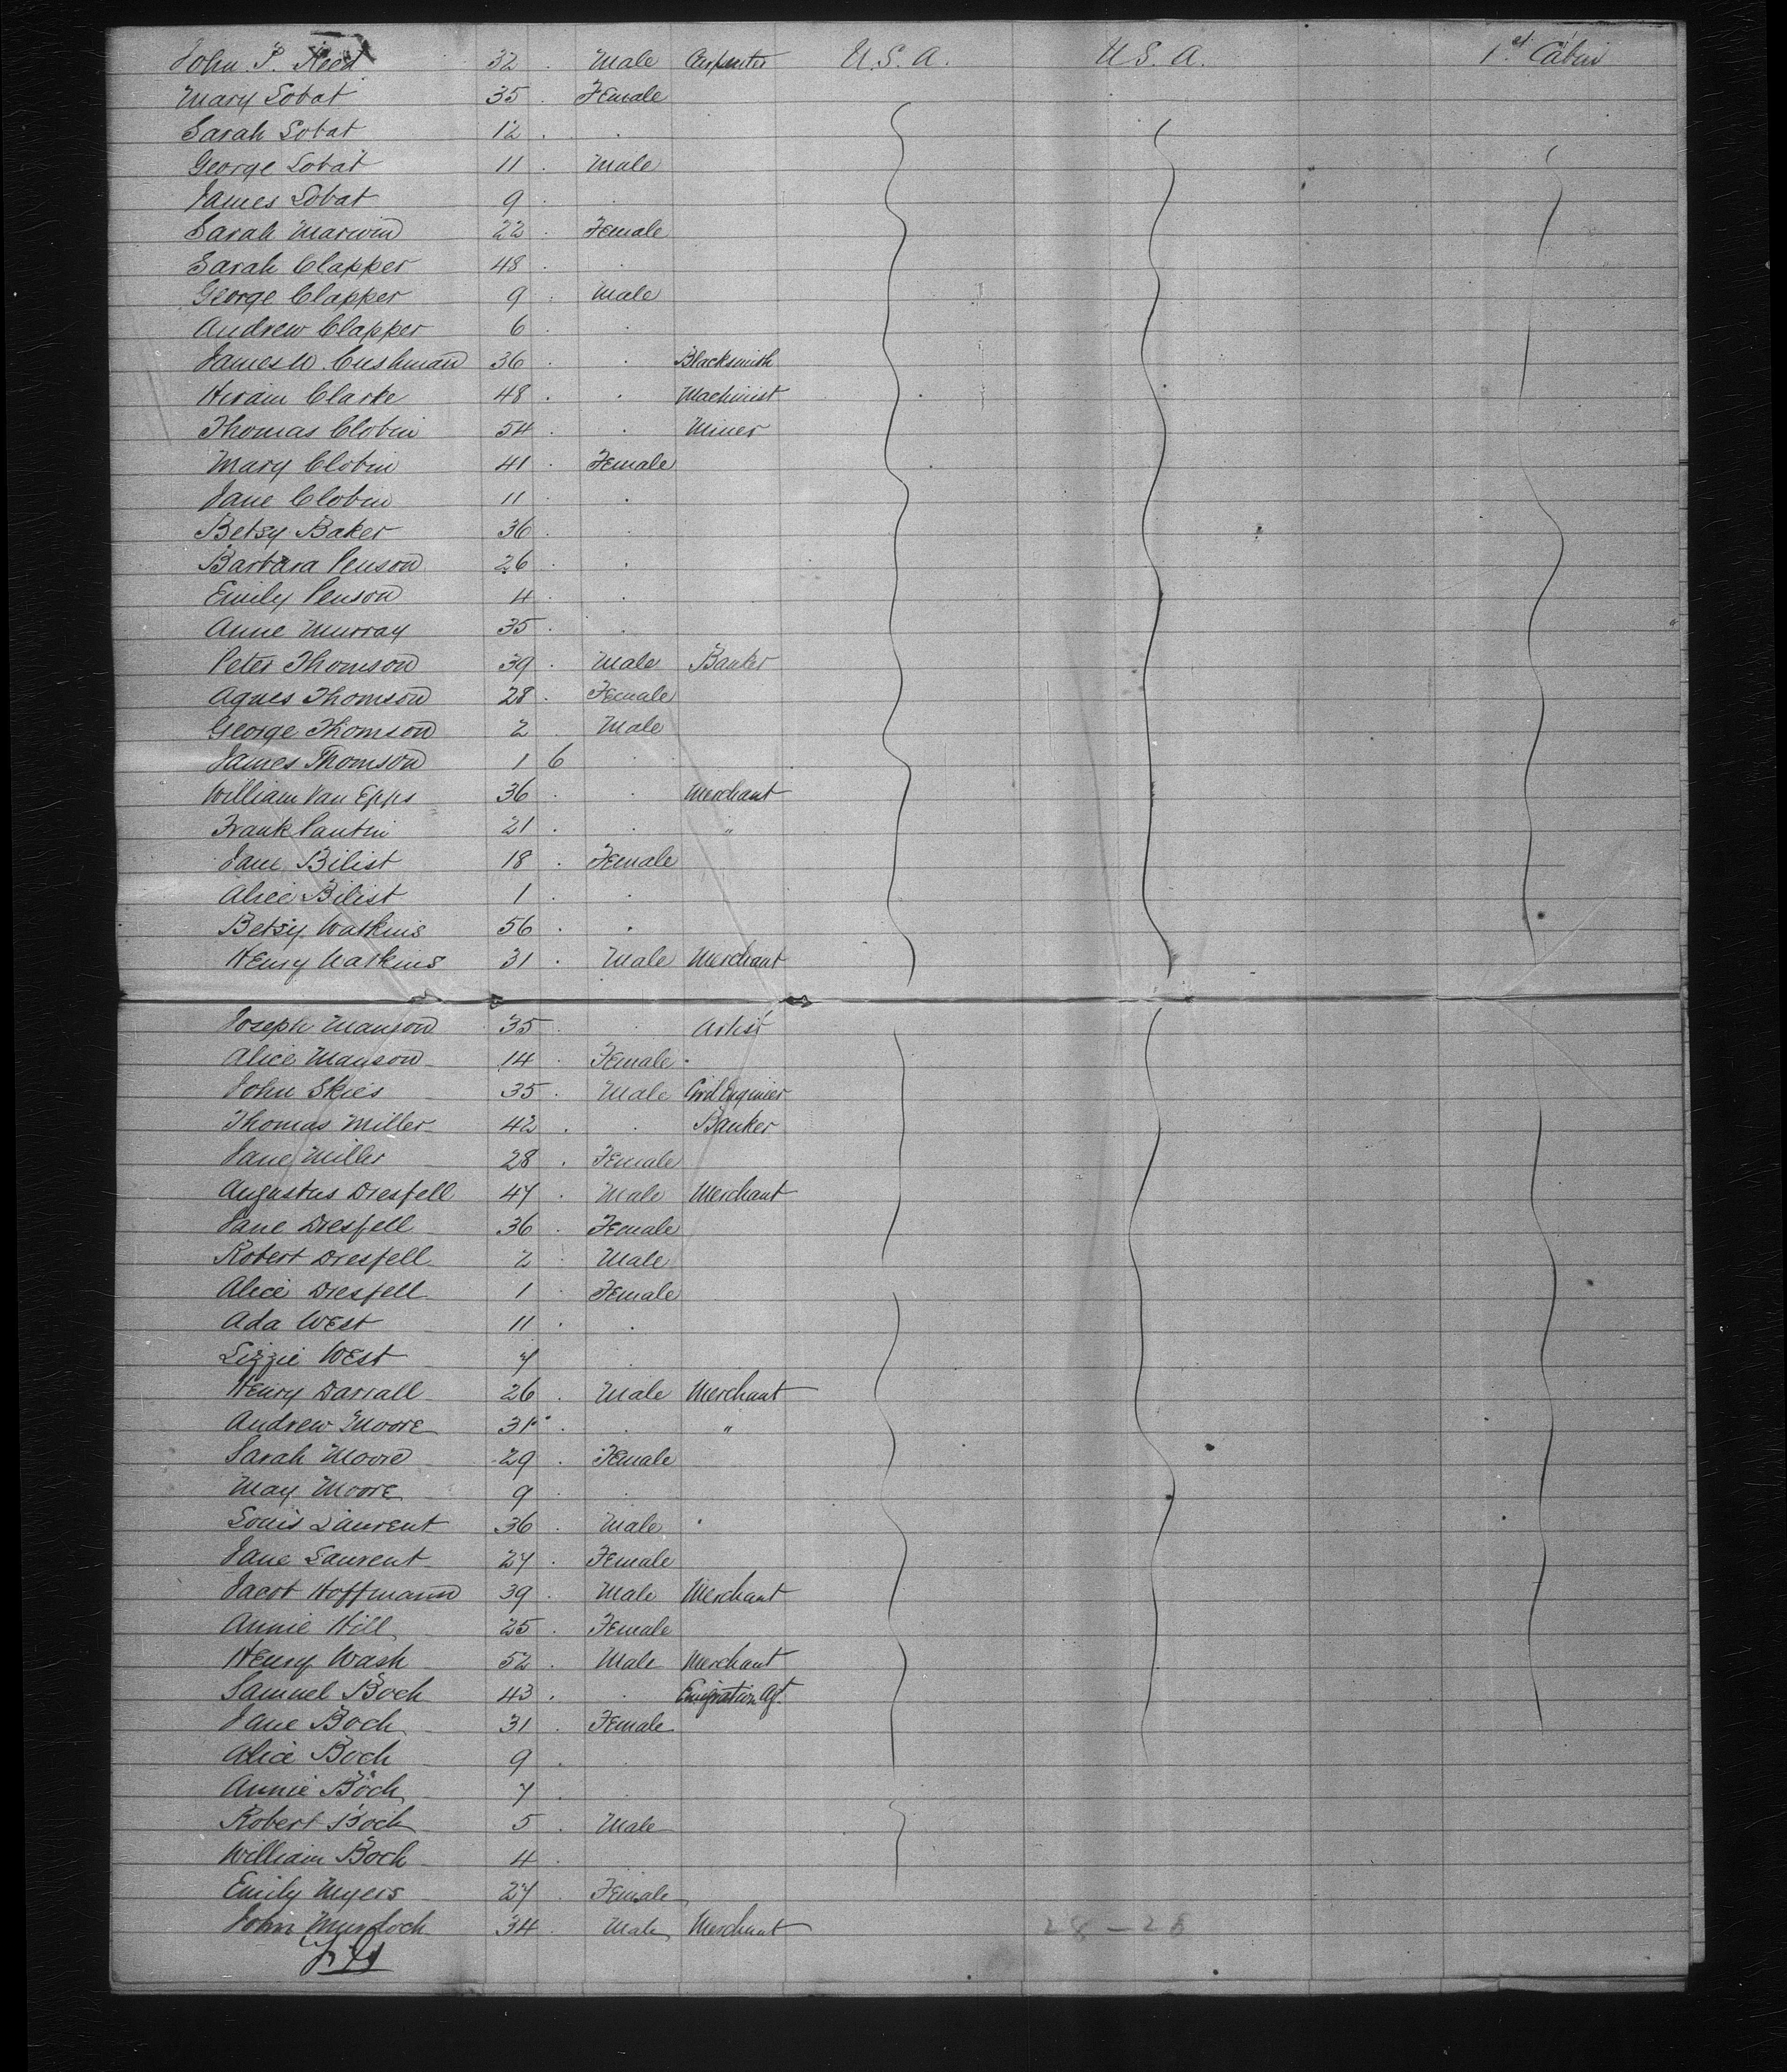 John P. Reed 32 . Male Carpenter U.S.A. U.S.A. 1st Cabin
Mary Lobat 35 . Female
Sarah Lobat 12 . .
George Lobat 11 . Male
James Lobat 9 . .
Sarah Marwin 22 . Female
Sarah Clapper 48 . .
George Clapper 9 . Male
Andrew Clapper 6 . .
James W. Cushman 36 . Blacksmith
Hiram Clarke 48 . . Machinist
Thomas Clobin 54 . . Miner
Mary Clobin 41 . Female
Jane Clobin 11 . .
Betsy Baker 36 . .
Barbara Penson 26 . .
Emily Penson 4 . .
Anne Murray 35 . .
Peter Thomson 39 . Male Banker
Agnes Thomson 28 . Female
George Thomson 2 . Male
James Thomson 1 6 .
William Van Epps 36 . . Merchant
Frank Pantin 21 . . "
Jane Bilist 18 . Female
Alice Bilist 1 . .
Betsy Watkins 56 . .
Henry Watkins 31 . Male Merchant
Joseph Manson 35 . . Artist
Alice Manson 14 . Female
John Skies 35 . Male Civil Engineer
Thomas Miller 42 . . Banker
Jane Miller 28 . Female
Augustus Dresfell 47 . Male Merchant
Jane Dresfell 36 . Female
Robert Dresfell 2 . Male
Alice Dresfell 1 . Female
Ada West 11 . .
Lizzie West 7 .
Henry Darrall 26 . Male Merchant
Andrew Moore 31 . . "
Sarah Moore 29 . Female
May Moore 9 . .
Louis Laurent 36 . Male
Jane Laurent 27 . Female
Jacob Hoffmann 39 . Male Merchant
Annie Hill 25 . Female
Henry Wash 52 . Male Merchant
Samuel Boch 43 . . Emigration Agt
Jane Boch 31 . Female
Alice Boch 9 . .
Annie Boch 7 . .
Robert Boch 5 . Male
William Boch 4 .
Emily Myers 27 . Female
John Murdoch 34 . Male Merchant 28 - 28